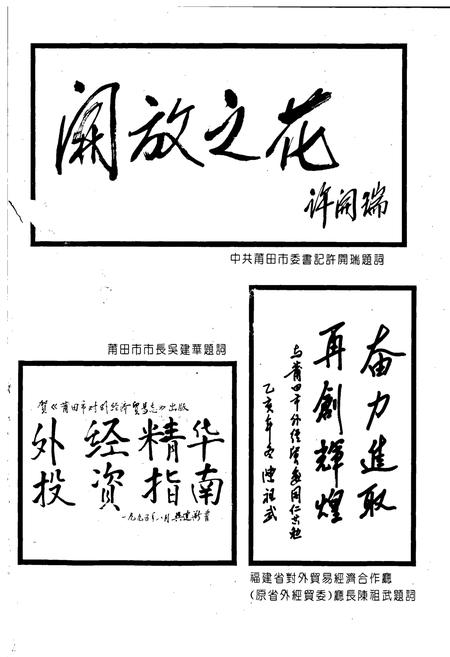 開放之花
许開瑞
中共莆田市委書記許開瑞題詞
莆田市市長吳建華題詞
贺《莆田市对外经济贸易志》出版
外经精华
投资指南
一九九五年八月吴建华書
奋力進取
再創輝煌
与莆田市外经贸委同仁共勉
乙亥年冬陳祖武
福建省對外貿易經濟合作廳
(原省外經貿委)廳長陳祖武題詞